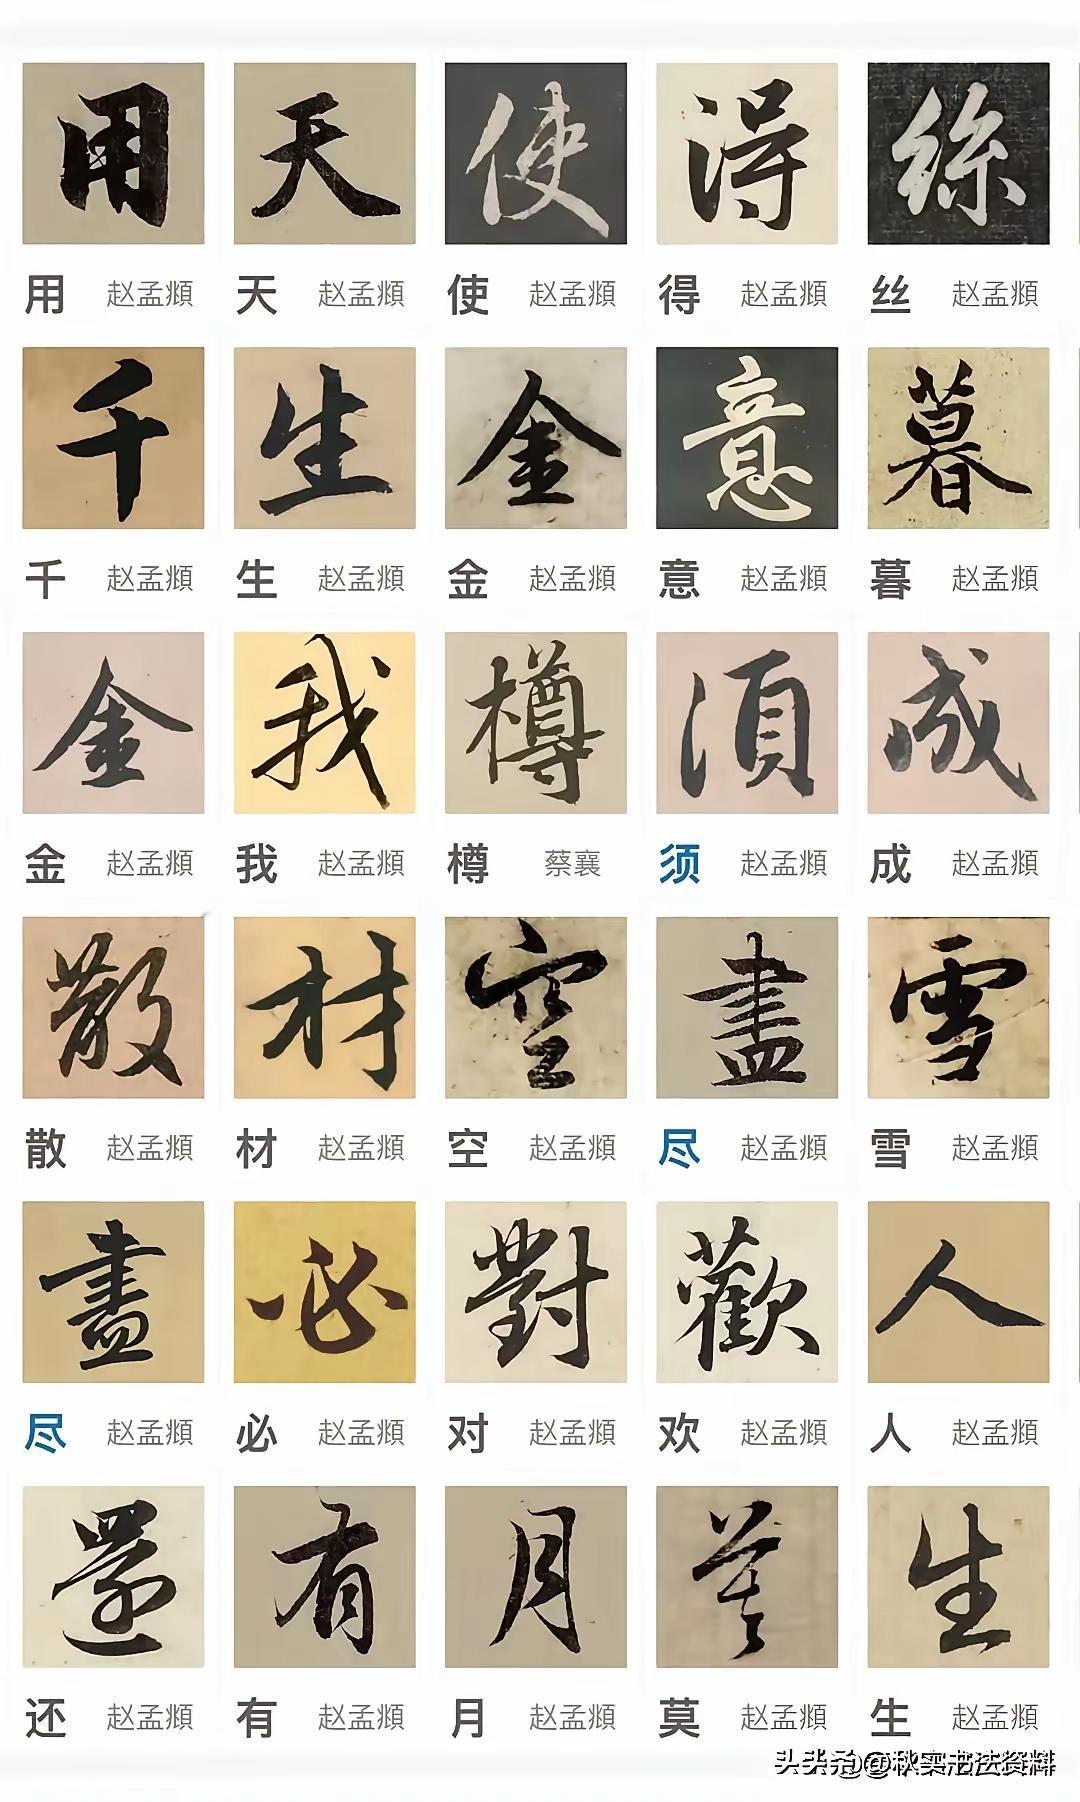 用 天 使 得 絲
用 赵孟頫 天 赵孟頫 使 赵孟頫 得 赵孟頫 丝 赵孟頫
千 生 金 意 暮
千 赵孟頫 生 赵孟頫 金 赵孟頫 意 赵孟頫 暮 赵孟頫
金 我 樽 須 成
金 赵孟頫 我 赵孟頫 樽 蔡襄 须 赵孟頫 成 赵孟頫
散 材 空 盡 雪
散 赵孟頫 材 赵孟頫 空 赵孟頫 尽 赵孟頫 雪 赵孟頫
盡 必 對 歡 人
尽 赵孟頫 必 赵孟頫 对 赵孟頫 欢 赵孟頫 人 赵孟頫
還 有 月 莫 生
还 赵孟頫 有 赵孟頫 月 赵孟頫 莫 赵孟頫 生 赵孟頫
头条号@秋实书法资料